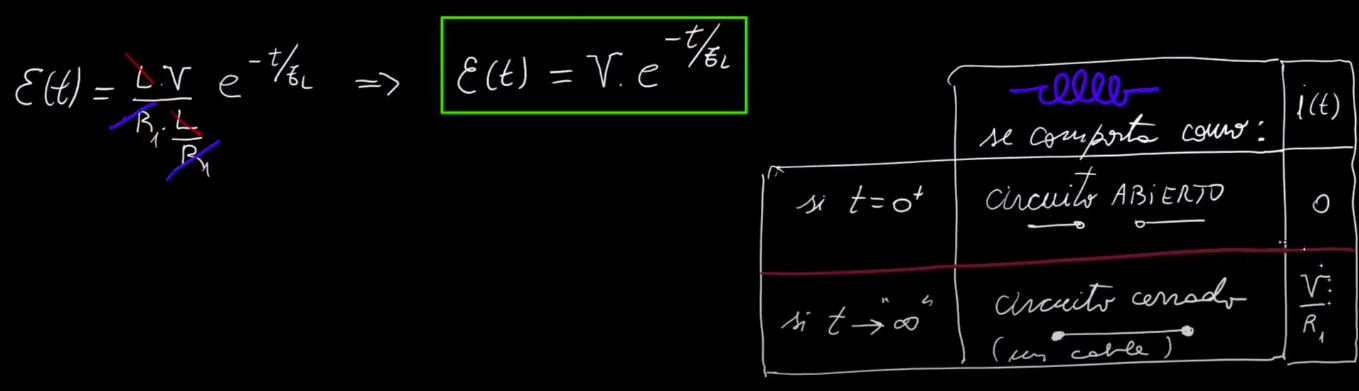 ε(t) = L.V / (R₁ . L/R₁) e^(-t/ℨ_L) => ε(t) = V. e^(-t/ℨ_L)
se comporta como: i(t)
si t = 0⁺ circuito ABiERTO 0
si t → "∞" circuito cerrado V/R₁
(un cable)